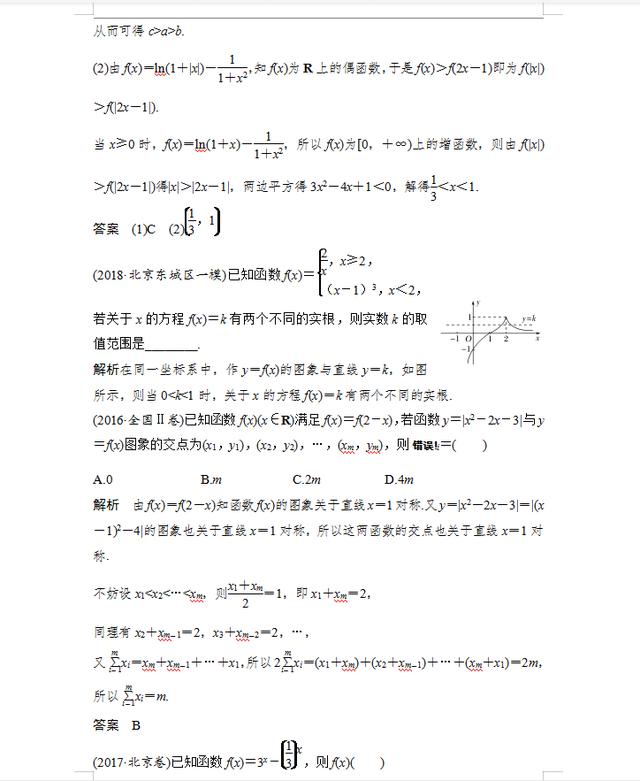 从而可得 c>a>b.
(2)由 f(x)=ln(1+|x|)-1/(1+x²),知 f(x)为 R 上的偶函数,于是 f(x)>f(2x-1)即为 f(|x|)
>f(|2x-1|).
当 x≥0 时, f(x)=ln(1+x)-1/(1+x²), 所以 f(x)为[0, +∞)上的增函数, 则由 f(|x|)
>f(|2x-1|)得|x|>|2x-1|, 两边平方得 3x²-4x+1<0, 解得1/3<x<1.
答案 (1)C (2)(1/3, 1)
(2018·北京东城区一模)已知函数 f(x)={2/x, x≥2,
(x-1)³, x<2,
若关于 x 的方程 f(x)=k 有两个不同的实根, 则实数 k 的取
值范围是________.
y
1
y=k
-1 O 1 2 x
-1
解析在同一坐标系中, 作 y=f(x)的图象与直线 y=k, 如图
所示, 则当 0<k<1 时, 关于 x 的方程 f(x)=k 有两个不同的实根.
(2016·全国Ⅱ卷)已知函数 f(x)(x∈R)满足 f(x)=f(2-x),若函数 y=|x²-2x-3|与 y
=f(x)图象的交点为(x₁, y₁), (x₂, y₂), …, (xₘ, yₘ), 则 错误!=( )
A.0 B.m C.2m D.4m
解析 由 f(x)=f(2-x)知函数 f(x)的图象关于直线 x=1 对称.又 y=|x²-2x-3|=|(x
-1)²-4|的图象也关于直线 x=1 对称, 所以这两函数的交点也关于直线 x=1 对
称.
不妨设 x₁<x₂<…<xₘ, 则(x₁+xₘ)/2=1, 即 x₁+xₘ=2,
同理有 x₂+xₘ₋₁=2, x₃+xₘ₋₂=2, …,
又 ∑ᵢ₌₁ᵐxᵢ=xₘ+xₘ₋₁+…+x₁, 所以 2∑ᵢ₌₁ᵐxᵢ=(x₁+xₘ)+(x₂+xₘ₋₁)+…+(xₘ+x₁)=2m,
所以 ∑ᵢ₌₁ᵐxᵢ=m.
答案 B
(2017·北京卷)已知函数 f(x)=3ˣ-(1/3)ˣ, 则 f(x)( )